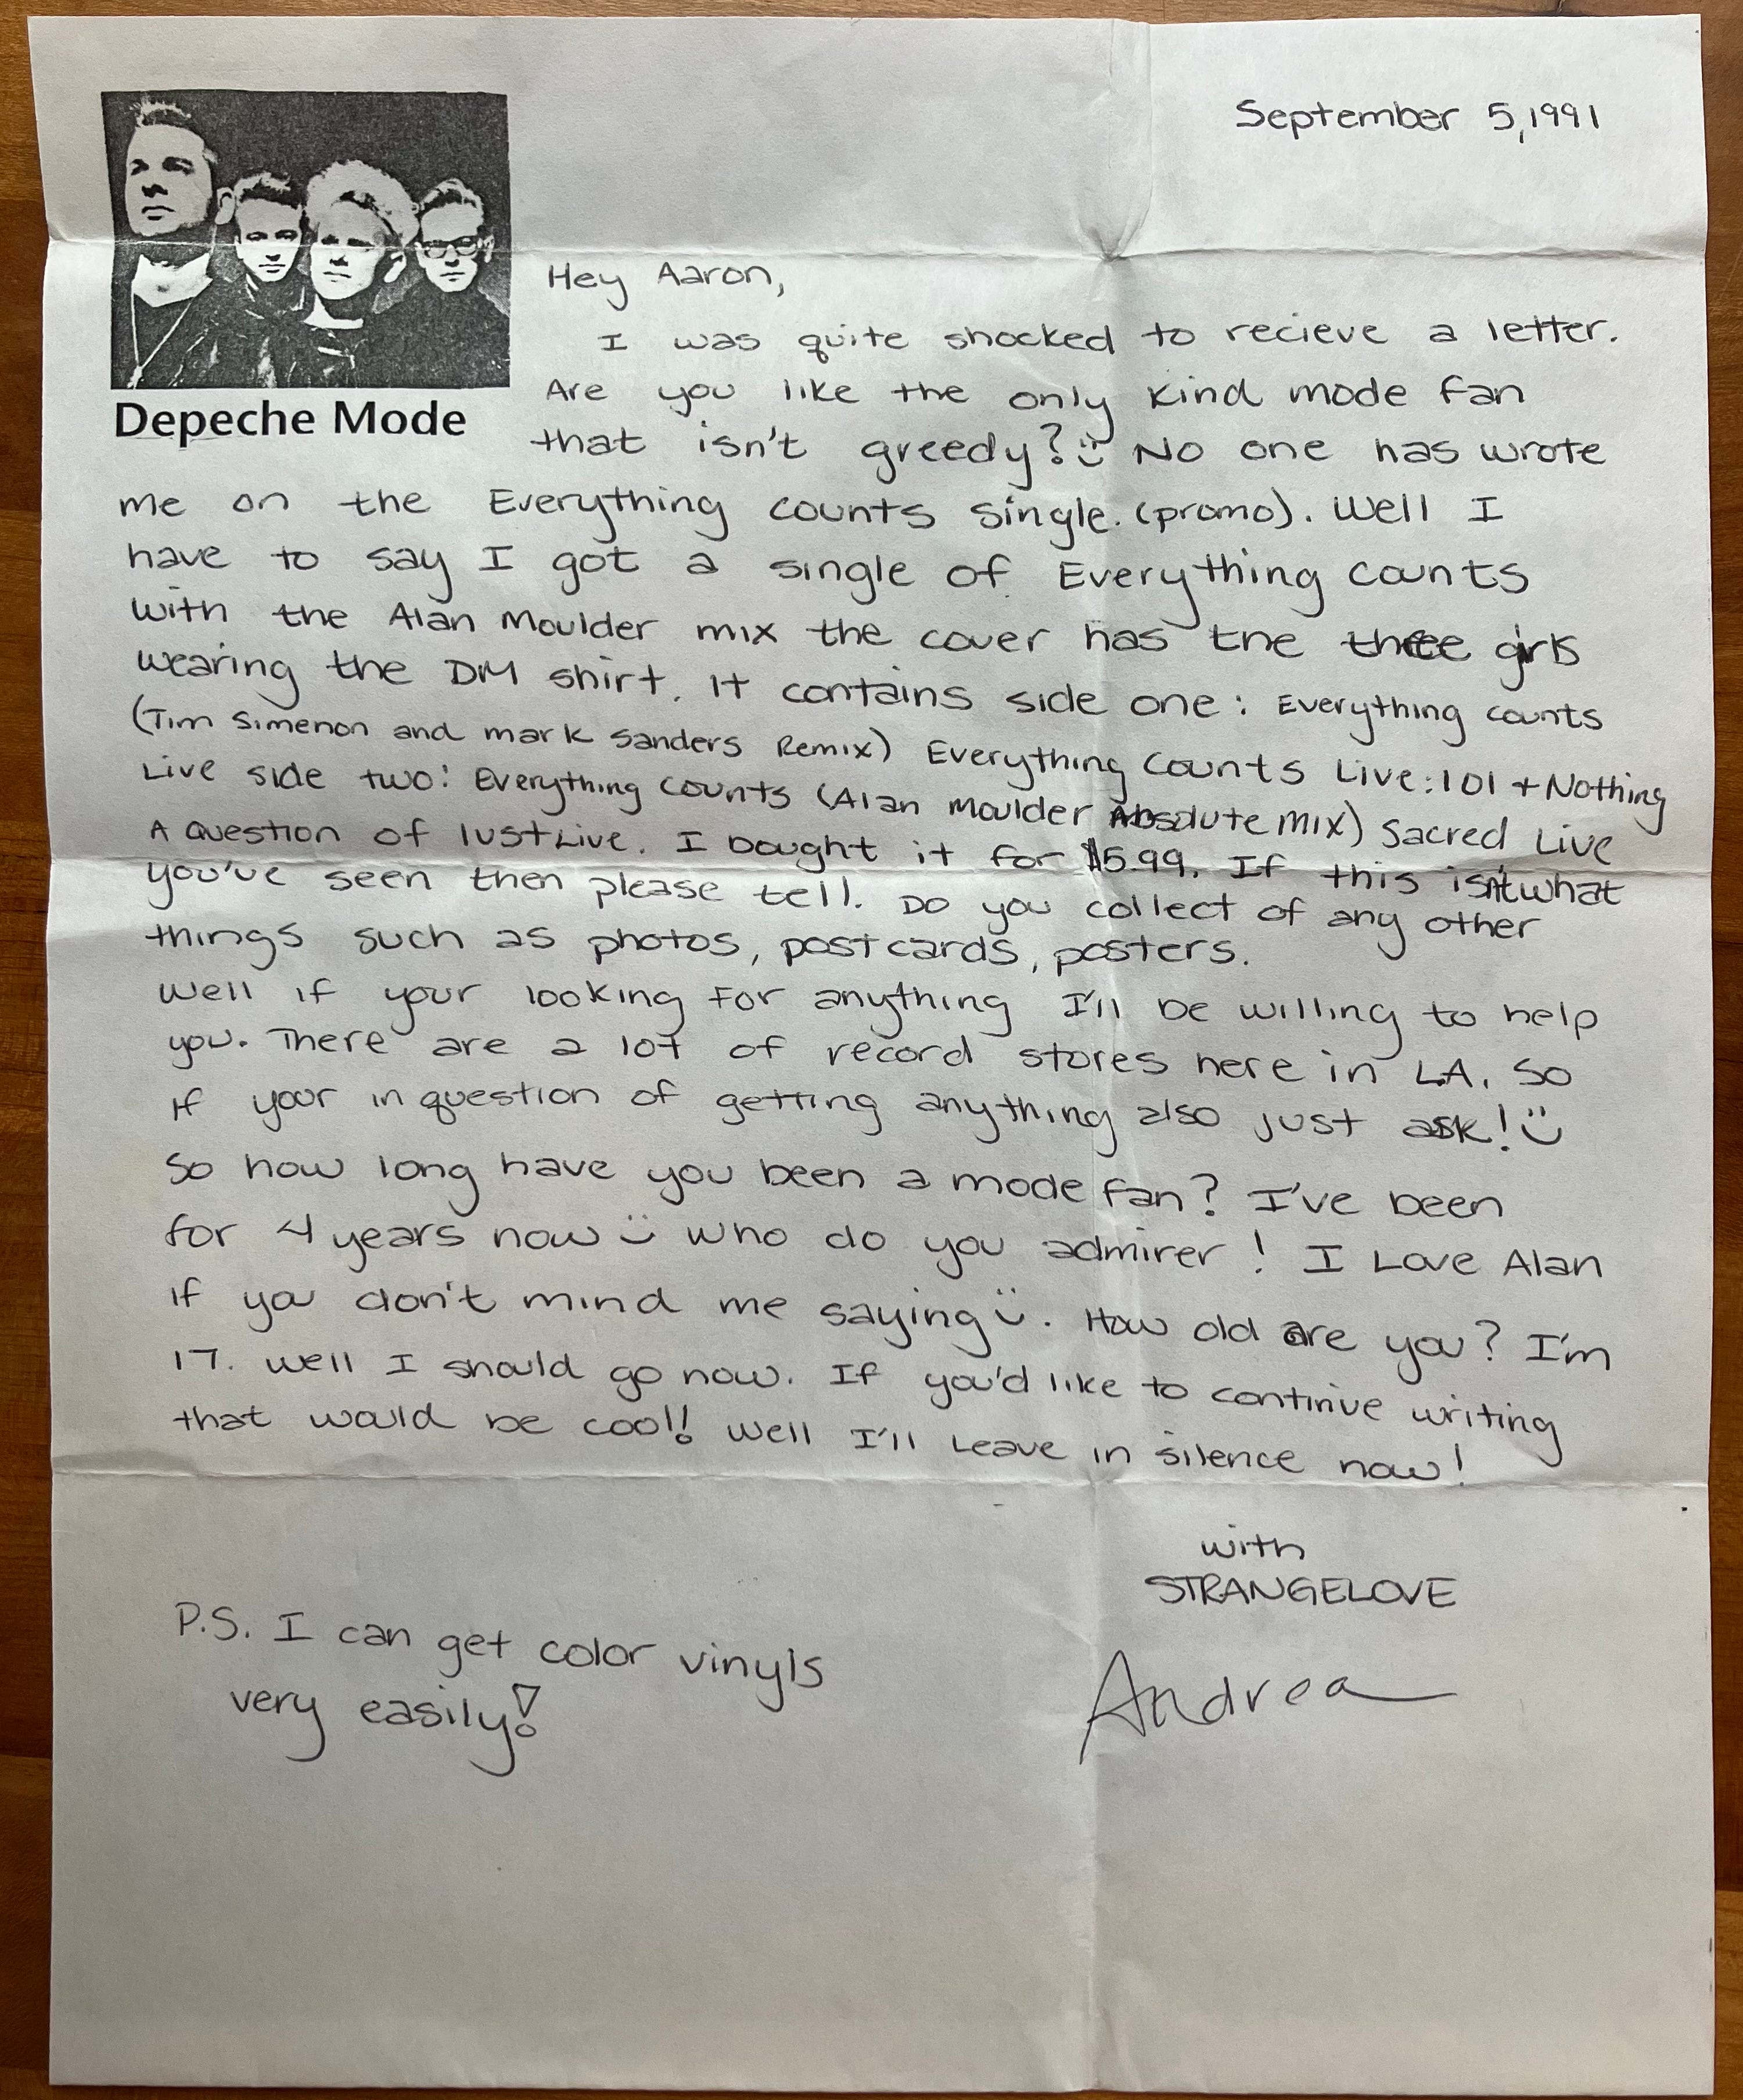 September 5, 1991
Depeche Mode
Hey Aaron,
I was quite shocked to recieve a letter.
Are you like the only kind mode fan
that isn't greedy? :) No one has wrote
me on the Everything counts single. (promo). Well I
have to say I got a single of Everything counts
with the Alan Moulder mix the cover has the three girls
wearing the DM shirt. It contains side one: Everything counts
(Tim Simenon and mark Sanders Remix) Everything Counts Live: 101 + Nothing
Live side two: Everything counts (Alan Moulder Absolute mix) Sacred Live
A question of lust Live. I bought it for $5.99. If this isn't what
you've seen then please tell. Do you collect of any other
things such as photos, postcards, posters.
Well if your looking for anything I'll be willing to help
you. There are a lot of record stores here in LA. So
if your in question of getting anything also just ask! :)
So how long have you been a mode fan? I've been
for 4 years now :) who do you admirer! I Love Alan
if you don't mind me saying :). How old are you? I'm
17. Well I should go now. If you'd like to continue writing
that would be cool! Well I'll Leave in silence now!
with
STRANGELOVE
Andrea
P.S. I can get color vinyls
very easily!